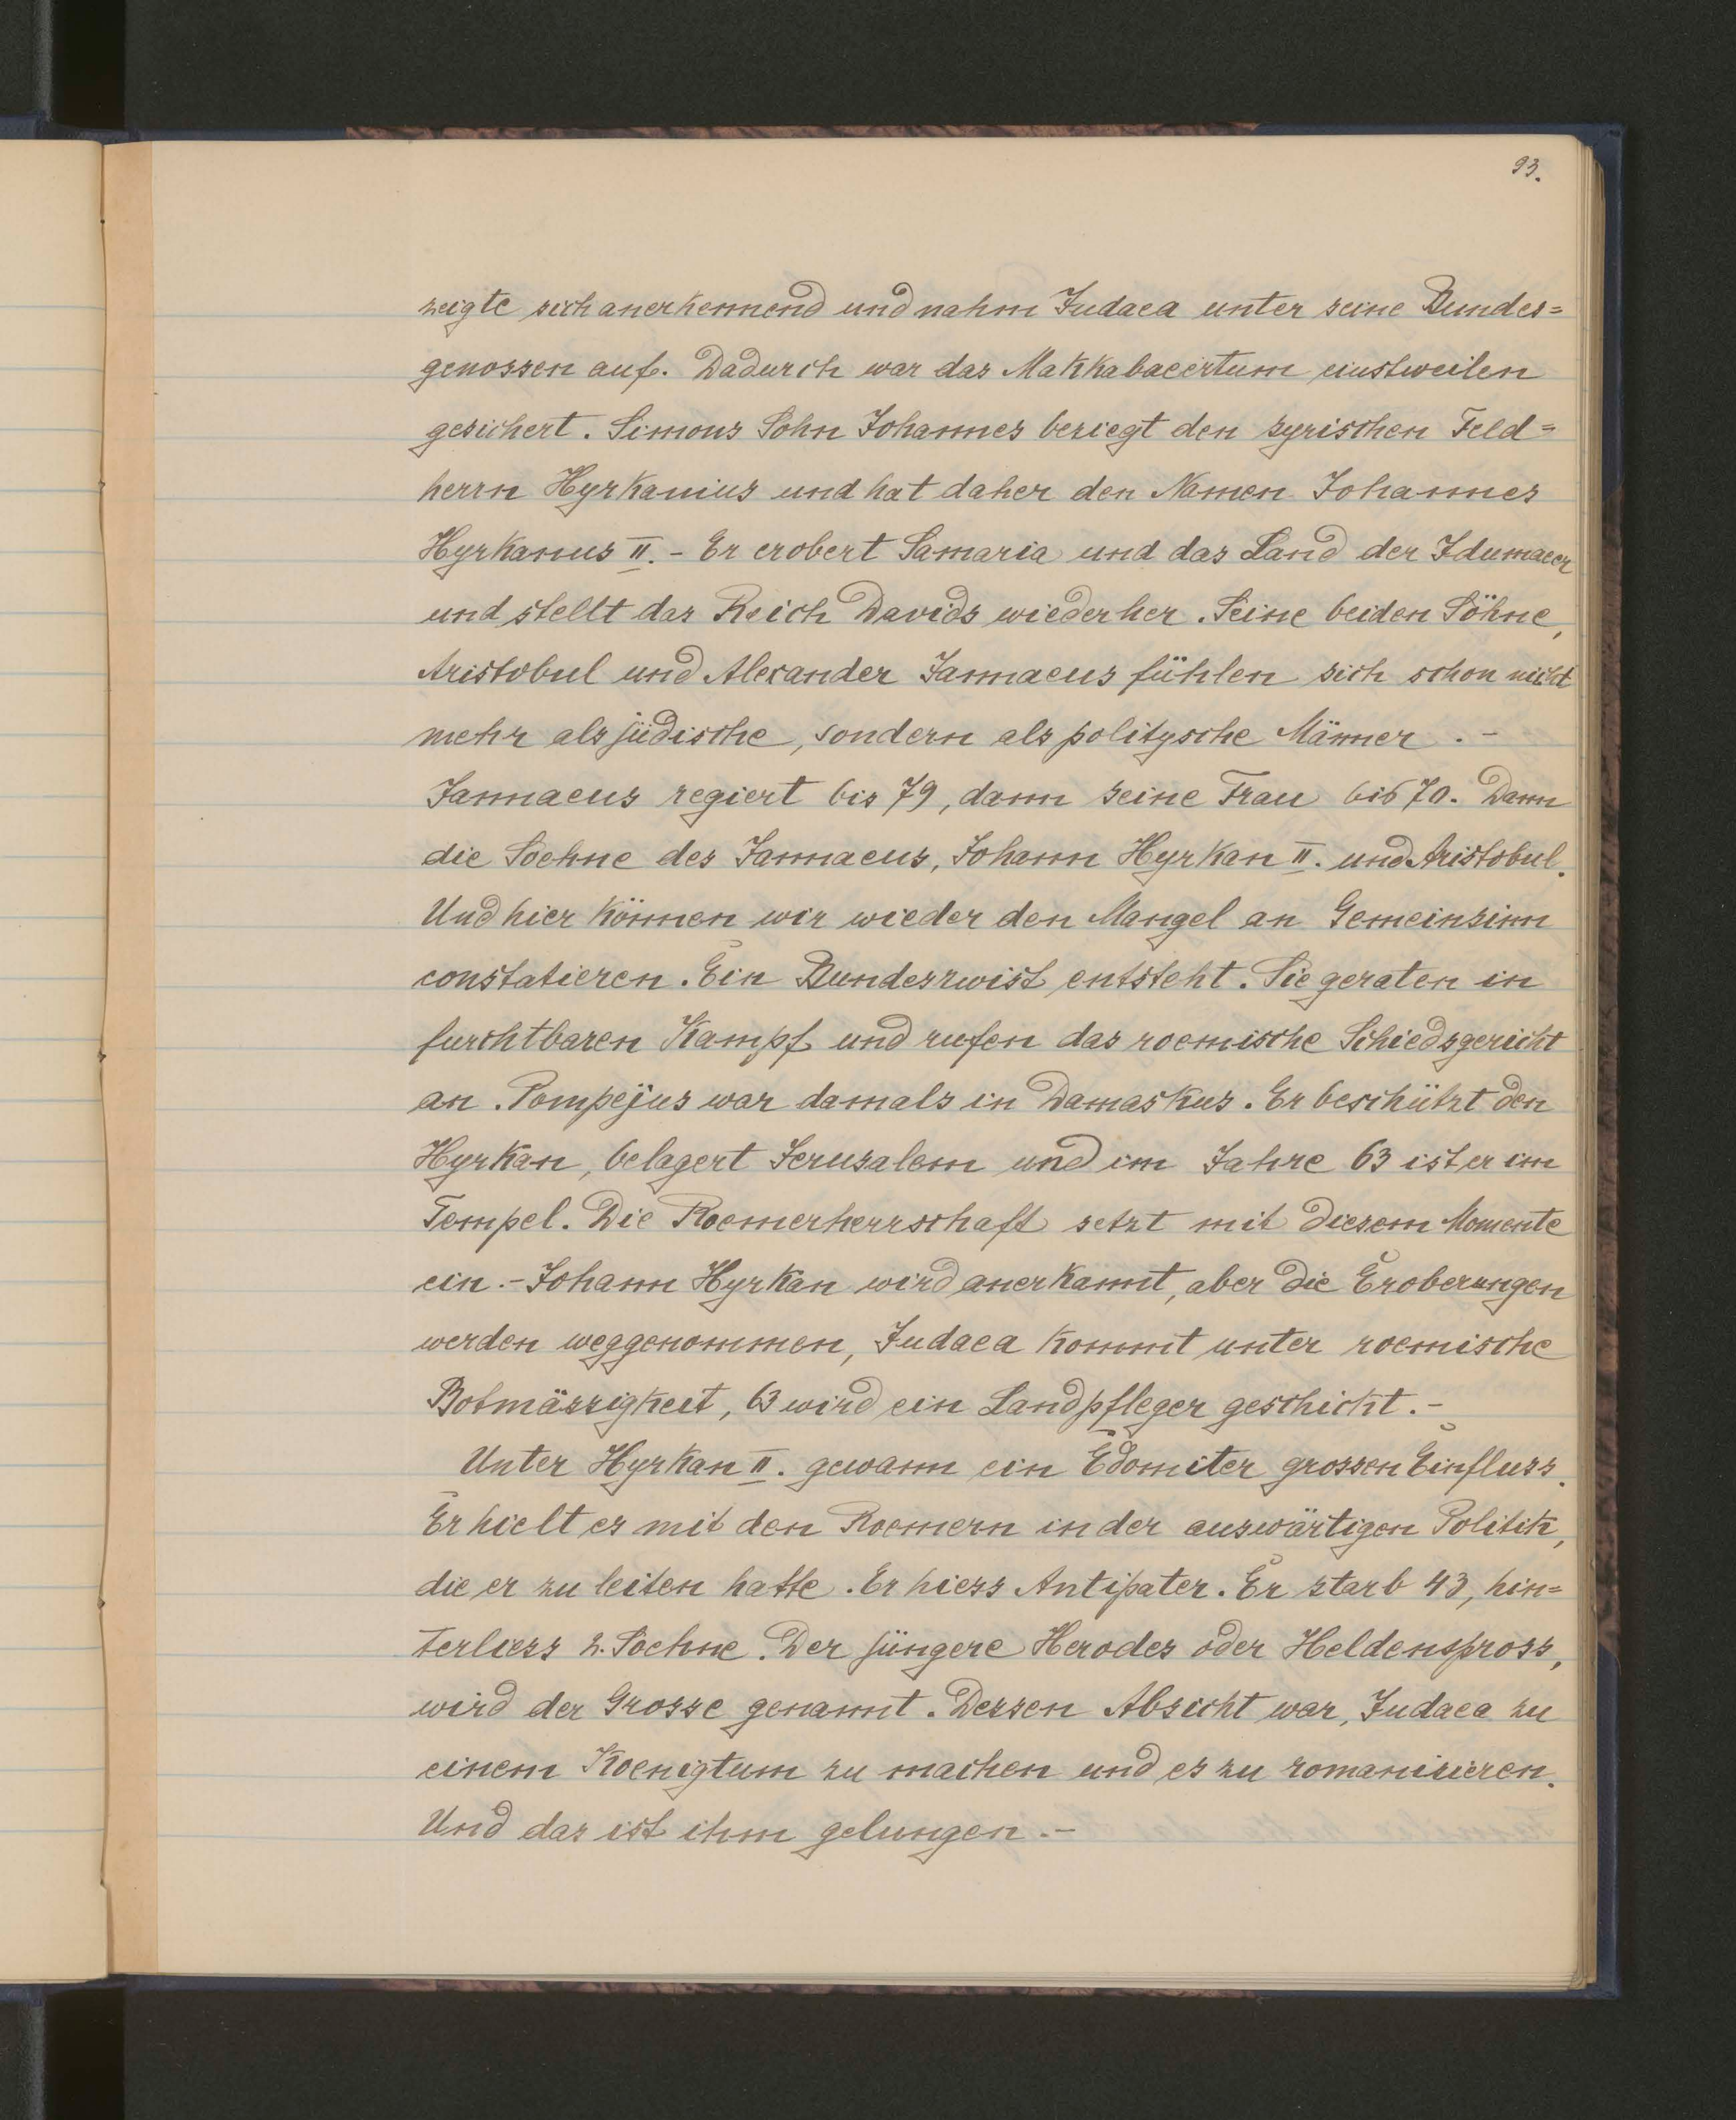 93.
zeigte sich anerkennend und nahm Judaea unter seine Bundes=
genossen auf. Dadurch war das Makkabaeertum einstweilen
gesichert. Simons Sohn Johannes besiegt den syrischen Feld=
herrn Hyrkanius und hat daher den Namen Johannes
Hyrkanus II. - Er erobert Samaria und das Land der Idumaeer
und stellt das Reich Davids wieder her. Seine beiden Söhne,
Aristobul und Alexander Jannaeus fühlen sich schon nicht
mehr als jüdische, sondern als politysche Männer. -
Jannaeus regiert bis 79, dann seine Frau bis 70. Dann
die Soehne des Jannaeus, Johann Hyrkan II. und Aristobul.
Und hier können wir wieder den Mangel an Gemeinsinn
constatieren. Ein Bundeszwist entsteht. Sie geraten in
furchtbaren Kampf und rufen das roemische Schiedsgericht
an. Pompejus war damals in Damaskus. Er beschützt den
Hyrkan, belagert Jerusalem und im Jahre 63 ist er im
Tempel. Die Roemerherrschaft setzt mit diesem Momente
ein. - Johann Hyrkan wird anerkannt, aber die Eroberungen
werden weggenommen, Judaea kommt unter roemische
Botmässigkeit, 63 wird ein Landpfleger geschickt. -
Unter Hyrkan II. gewann ein Edomiter grossen Einfluss.
Er hielt es mit den Roemern in der auswärtigen Politik,
die er zu leiten hatte. Er hiess Antipater. Er starb 43, hin=
terliess 2. Soehne. Der jüngere Herodes oder Heldenspross,
wird der Grosse genannt. Dessen Absicht war, Judaea zu
einem Koenigtum zu machen und es zu romanisieren.
Und das ist ihm gelungen. -